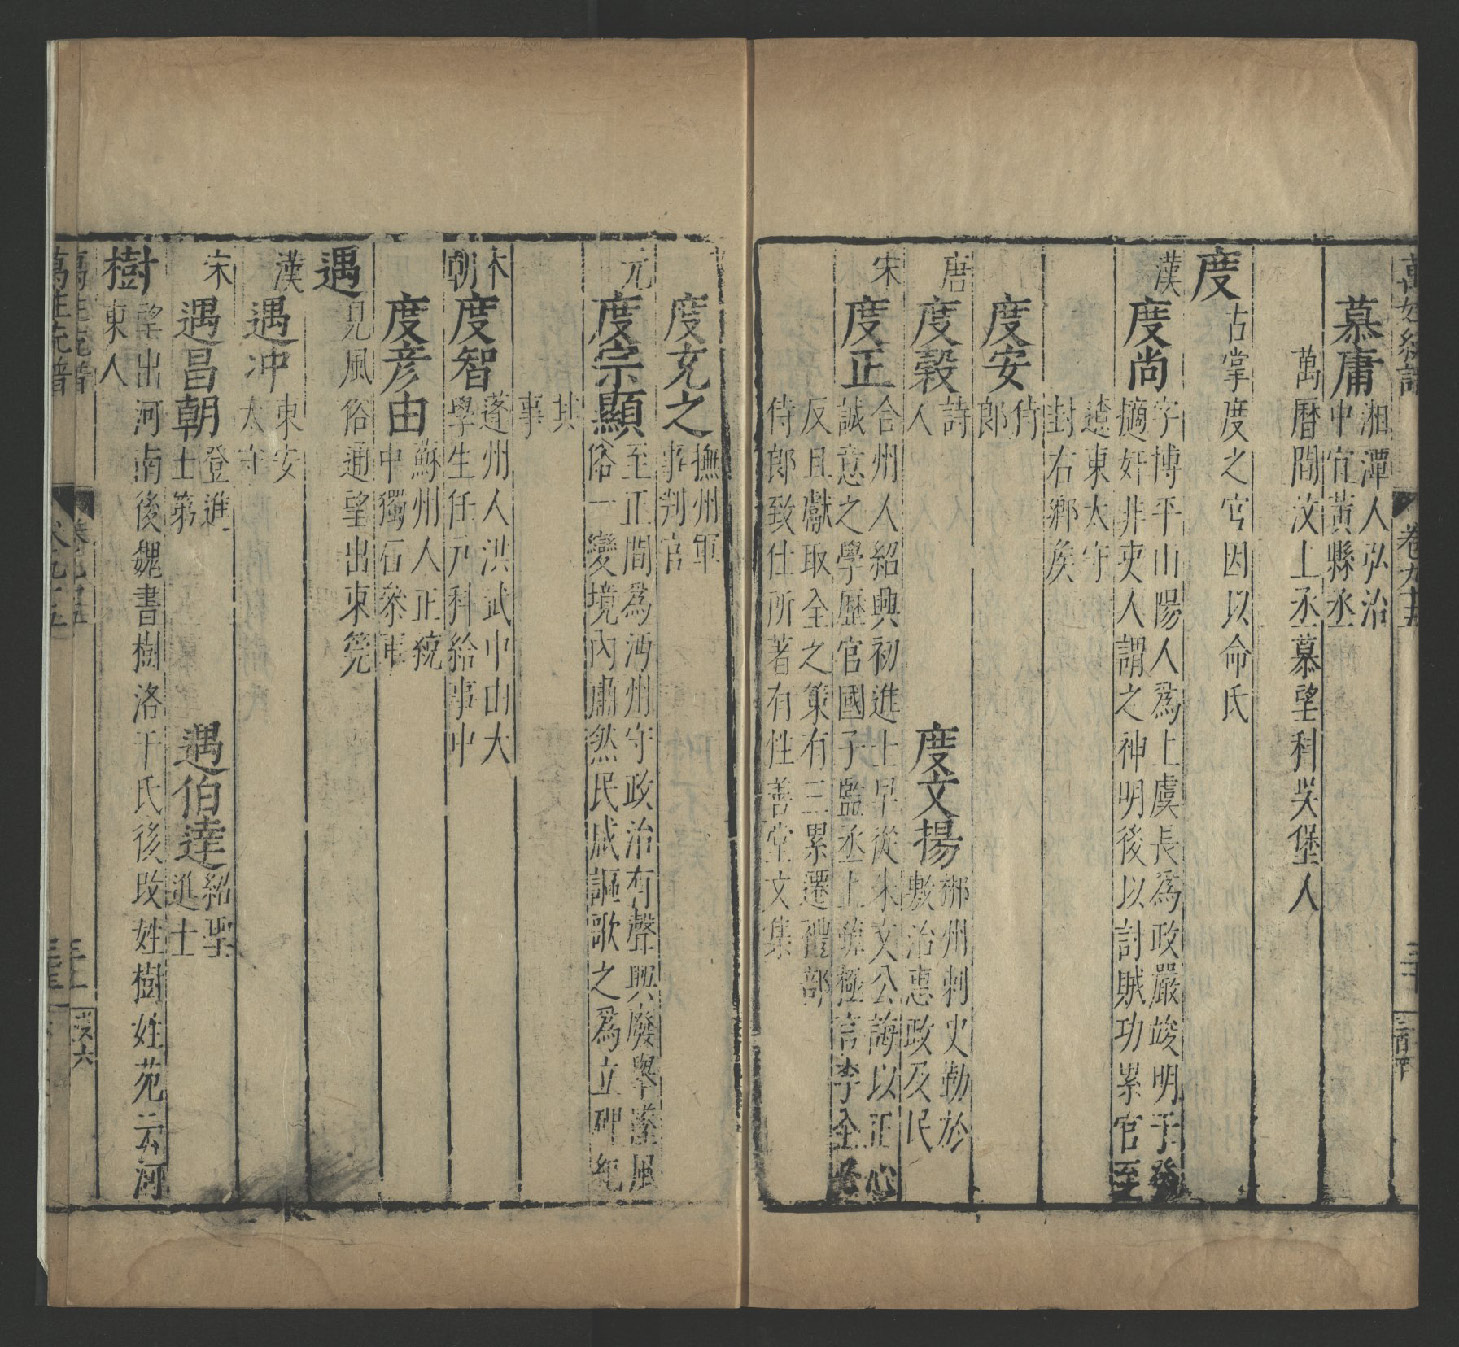 慕庸 湘潭人弘治
中宜黃縣丞
萬曆間汶上丞慕望科吳堡人
度 古掌度之官因以命氏
漢 度尚 字博平山陽人爲上虞長爲政嚴峻明于發
擿奸非吏人謂之神明後以討賊功累官至
遼東太守
封右鄉侯
度安 侍
郎
唐 度轂 詩
人
度文揚 鄜州刺史勤於
敷治惠政及民
宋 度正 合州人紹興初進士早從朱文公誨以正心
誠意之學歷官國子監丞上疏極言李全
反且獻取全之策有三累遷禮部
侍郎致仕所著有性善堂文集
度克之 撫州軍
事判官
元 度宗顯 至正間爲沔州守政治有聲興廢舉墜風
俗一變境內肅然民咸謳歌之爲立碑紀
其
事
本朝 度智 蓬州人洪武中由太
學生任元科給事中
度彥由 蘇州人正統
中獨石參軍
遇 見風俗通望出東筦
漢 遇冲 東安
太守
宋 遇昌朝 登進
士第
遇伯達 紹聖
進士
樹 望出河南後魏書樹洛于氏後改姓樹姓苑云河
東人